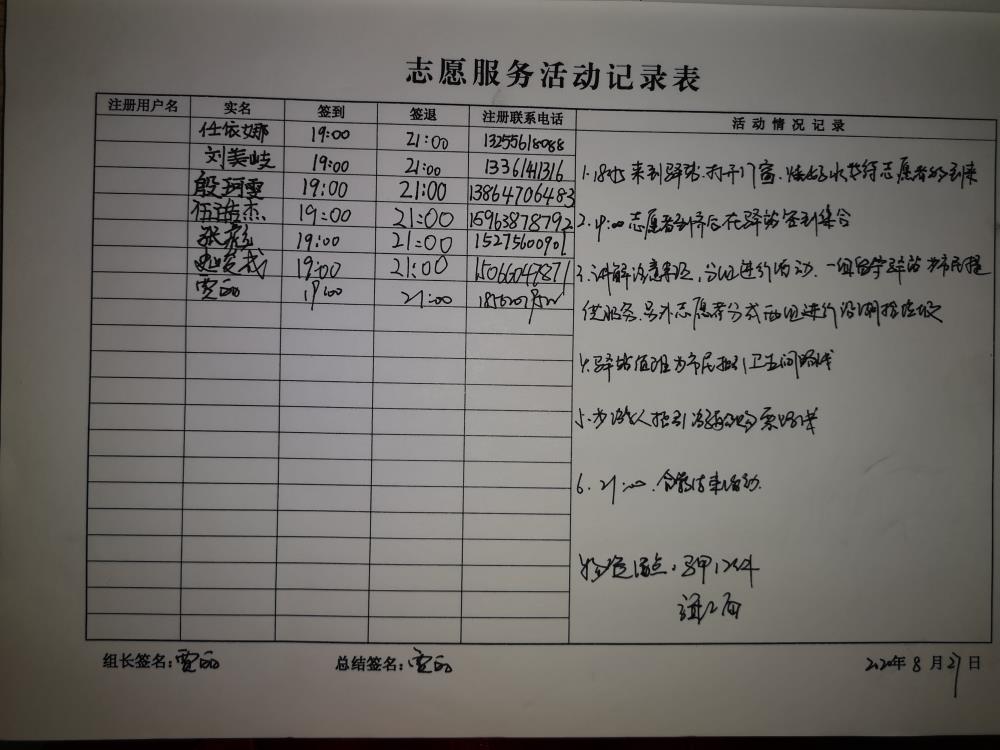 志愿服务活动记录表
注册用户名 实名 签到 签退 注册联系电话 活动情况记录
任依娜 19:00 21:00 13255618088
刘美岐 19:00 21:00 1336141316
殷珂雯 19:00 21:00 13864706483
伍浩杰 19:00 21:00 15963878792
张彪 19:00 21:00 1527560090
19:00 21:00 1506604827
贾丽 19:00 21:00
1.18时 来到驿站.打开门窗.烧好水等待志愿者的到来
2.19:00志愿者到齐后在驿站签到集合
3.讲解注意事项,分组进行活动.一组留守驿站为市民提
供服务.另外志愿者分成两组进行沿湖捡垃圾
4.驿站值班为市民指引卫生间路线
5.为游人指引
6.21:00.合影结束活动.
物资清点:马甲12件
旗2面
组长签名:贾丽 总结签名:贾丽 2020年8月27日